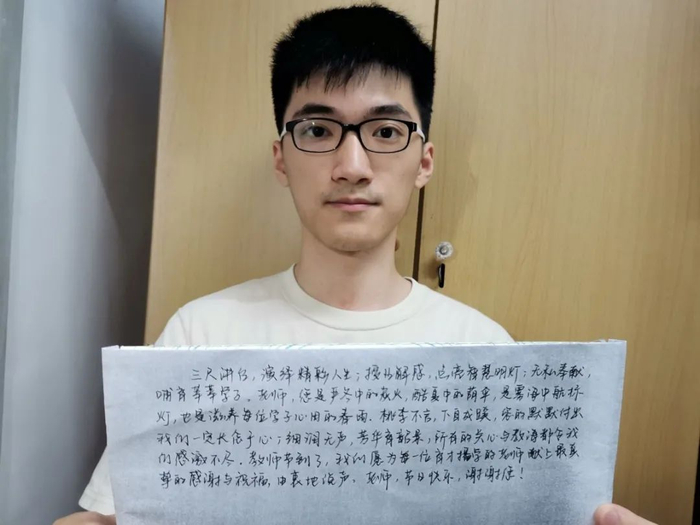 三尺讲台，演绎精彩人生；授业解惑，点亮智慧明灯；无私奉献，
哺育莘莘学子。老师，您是严冬中的炭火，酷夏中的荫伞，是雾海中航标
灯，也是滋养每位学子心田的春雨。桃李不言，下自成蹊，您的默默付出
我们一定长念于心；细润无声，芳华育，所有的关心与教海都令我
们感激不尽。教师节到了，我们愿为每一位育才播学的老师献上最真
挚的感谢与祝福，由衷地说声：老师，节日快乐，谢谢您！